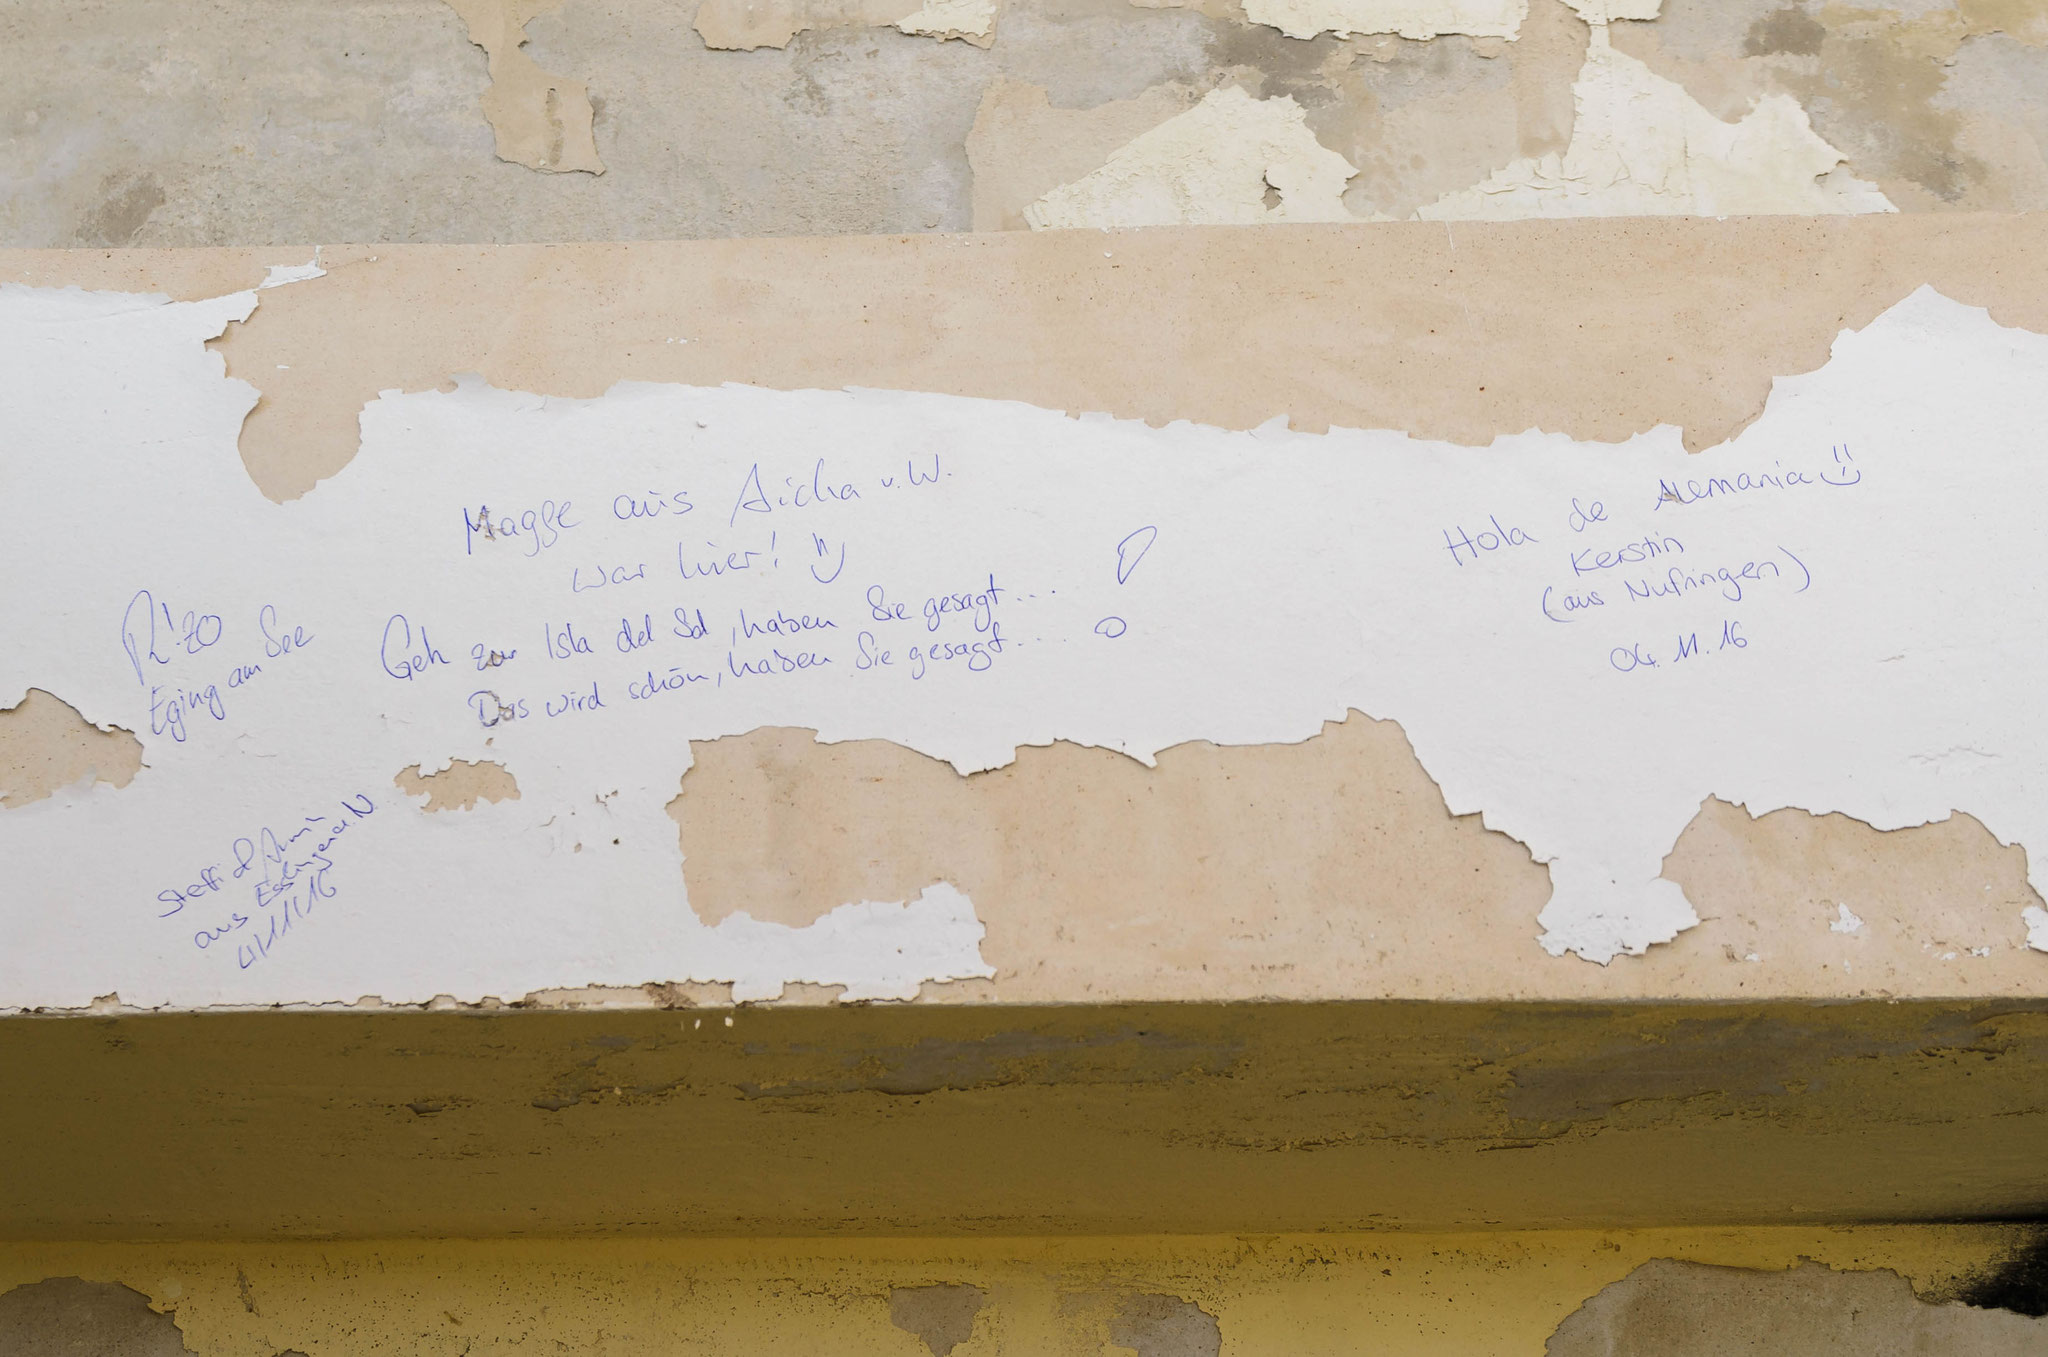 Magge aus Aicha v. W.
war hier!
Geh zur Isla del Sol, haben Sie gesagt...
Das wird schön, haben Sie gesagt.... !
Rizo
Eging am See
Steffi & Armin
aus Esslingen a. N
4/11/16
Hola de Alemania
Kerstin
(aus Nufringen)
04. 11. 16